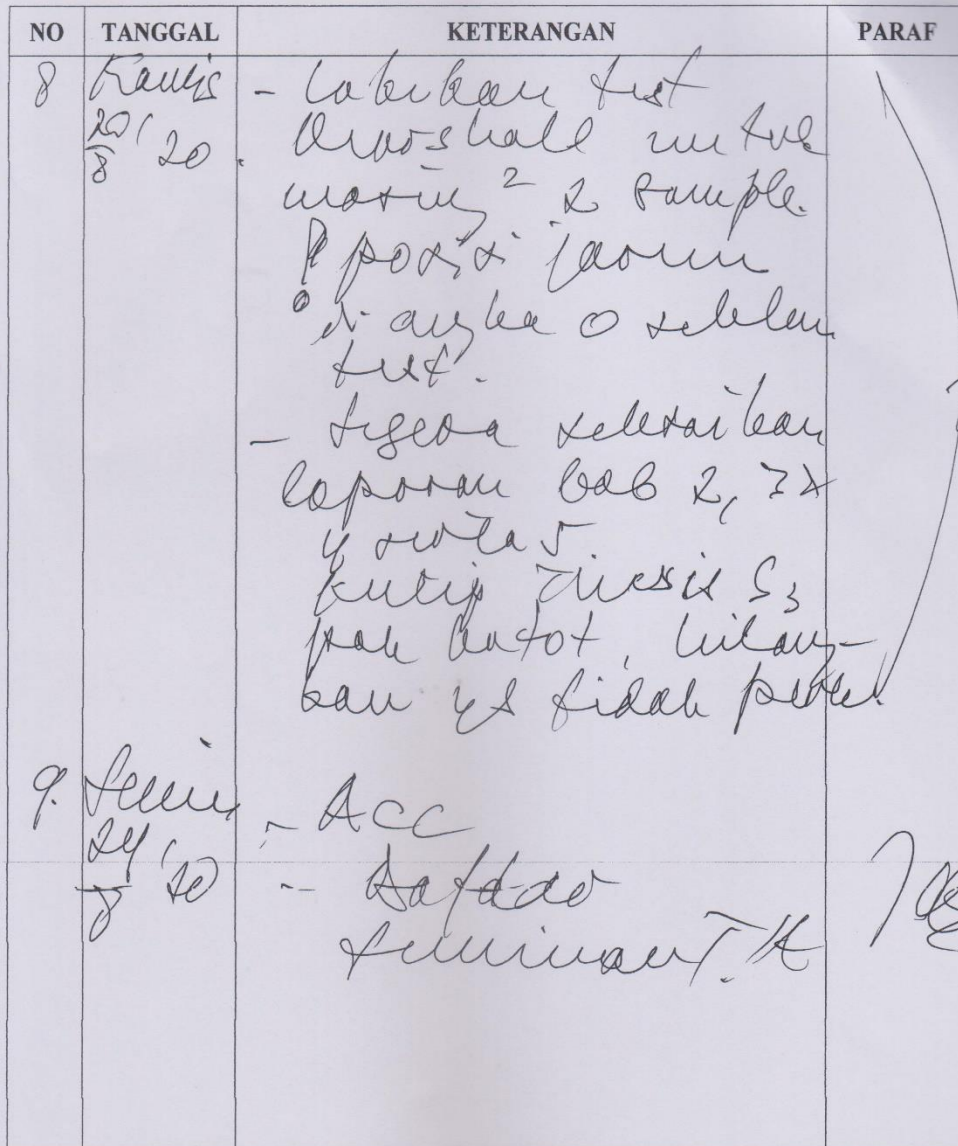 NO TANGGAL KETERANGAN PARAF
8 Kamis 20/8 '20 - Lakukan test
Marshall untuk
masing² 2 sample.
posisi jarum
di angka 0 sebelum
test.
- Segera selesaikan
laporan bab 2, 3 &
4 serta 5
Kutip S3
pak, hilang-
kan yg tidak perlu.
9. Senin 24/8 '20 - ACC
- Daftar
Seminar T.A